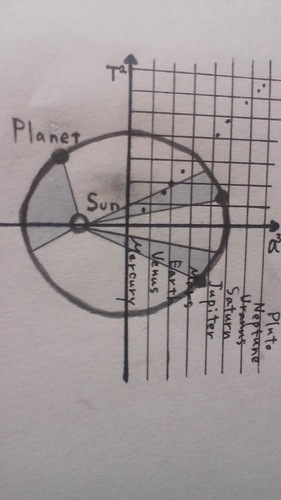 T²
Planet
Sun
a³
Mercury
Venus
Earth
Mars
Jupiter
Saturn
Uranus
Neptune
Pluto